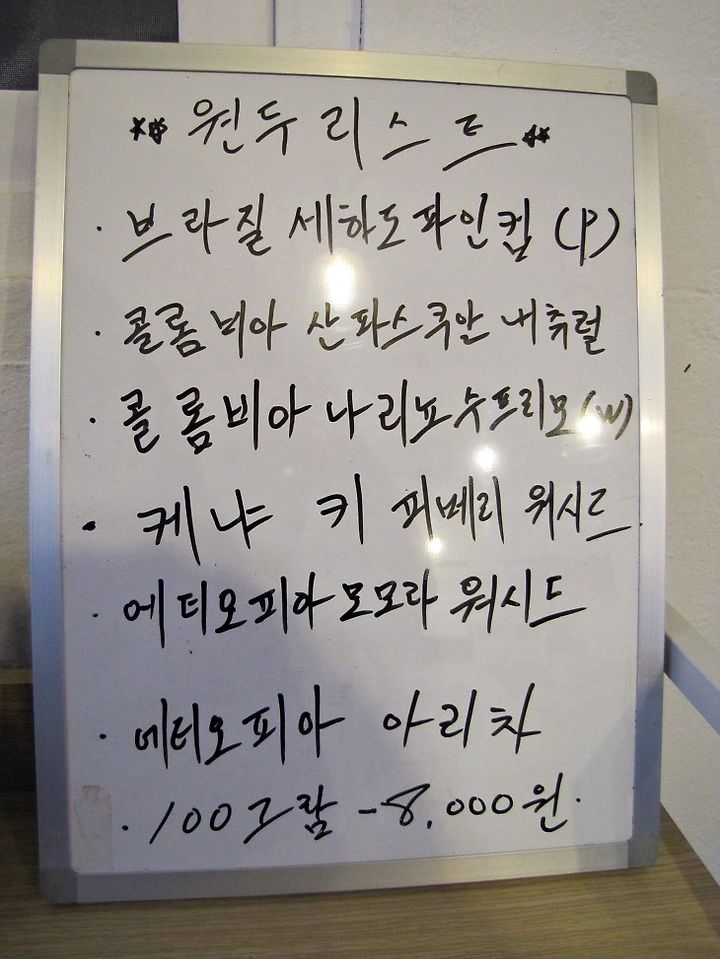 ** 원두 리스트 **
· 브라질 세하도파인컵 (P)
· 콜롬비아 산파스쿠안 내츄럴
· 콜롬비아 나리뇨수프리모(W)
· 케냐 키 피베리 워시드
· 에티오피아모모라 워시드
· 에티오피아 아리차
· 100그람 - 8,000원·